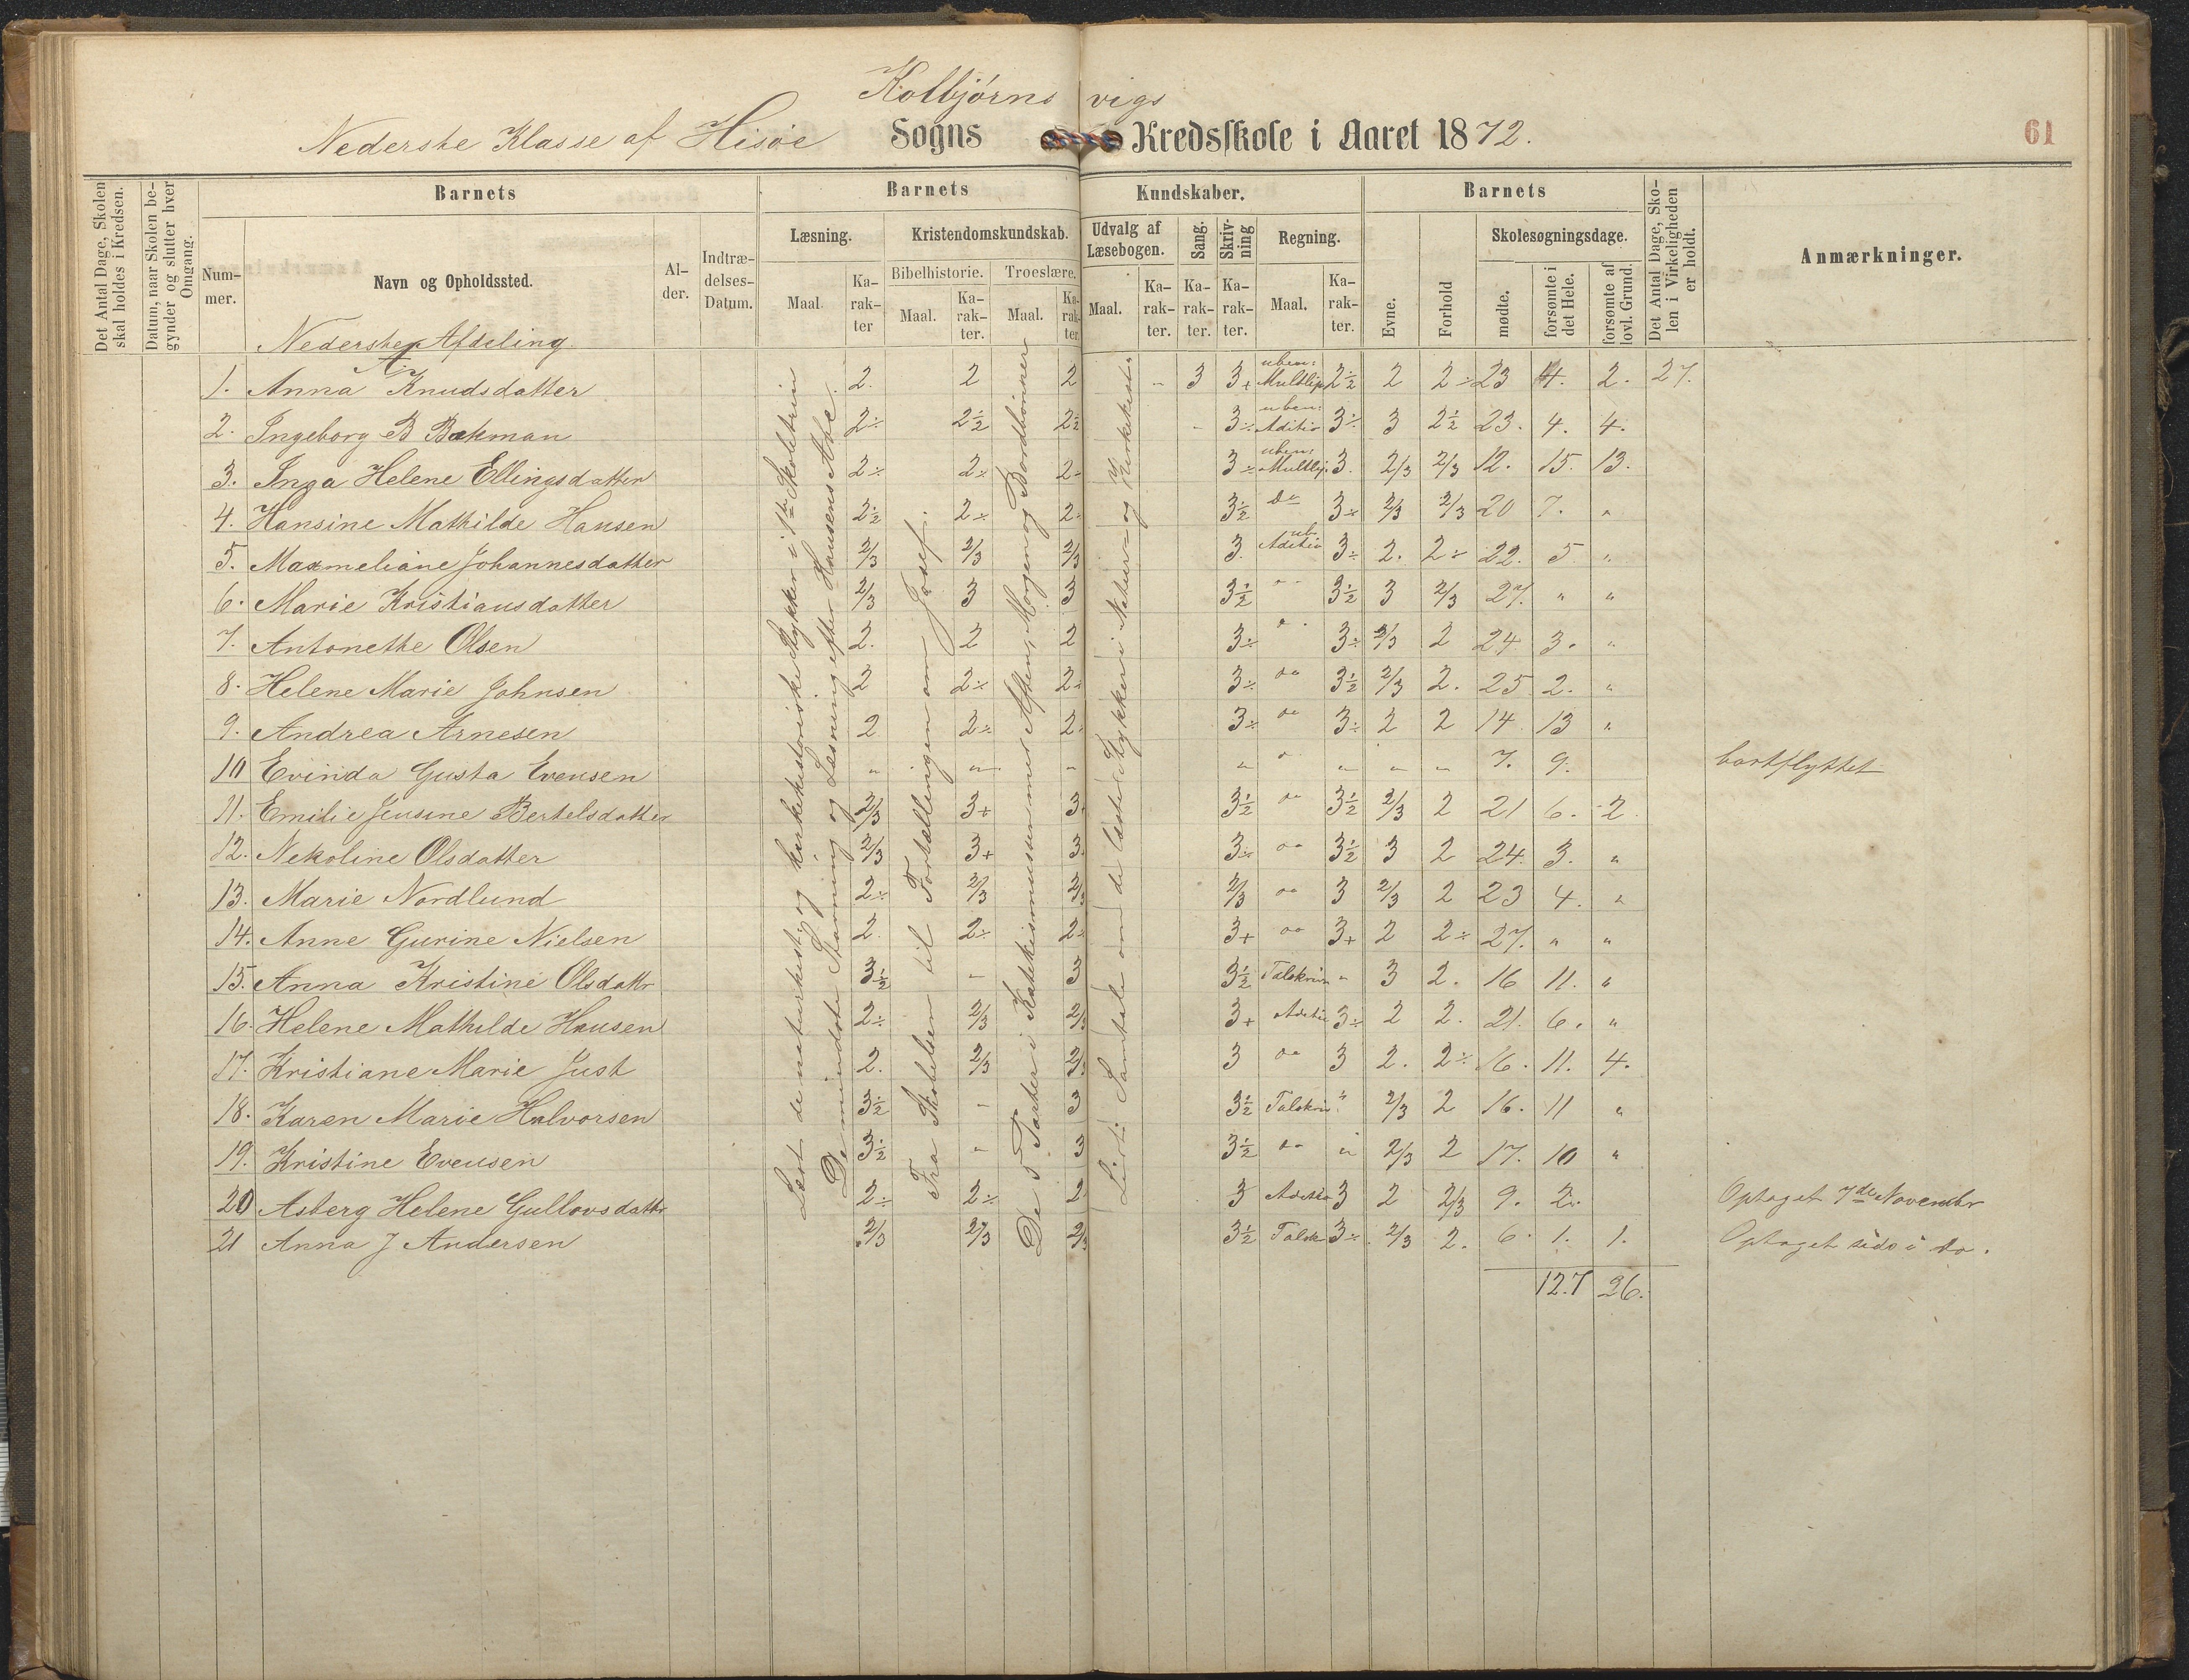 Kolbjörnsvigs
Nederste Klasse af Hisøe Sogns Kredsskole i Aaret 1872.
61
Det Antal Dage, Skolen skal holdes i Kredsen.
Datum, naar Skolen begynder og slutter hver Omgang.
Barnets
Nummer.
Navn og Opholdssted.
Alder.
Indtrædelses-Datum.
Barnets Kundskaber.
Læsning.
Maal
Karakter
Kristendomskundskab.
Bibelhistorie.
Maal.
Karakter.
Troeslære.
Maal.
Karakter
Udvalg af Læsebogen.
Maal.
Karakter.
Sang.
Karakter.
Skrivning
Karakter.
Regning.
Maal.
Karakter.
Barnets
Evne.
Forhold
Skolesøgningsdage.
mødte.
forsømte i det Hele.
forsømte af lovl. Grund.
Det Antal Dage, Skolen i Virkeligheden er holdt.
Anmærkninger.
Nederste Afdeling
A.
1. Anna Knudsdatter 2. 2 2 „ 3 3+ uben: Multlip 2½ 2 2÷ 23 4. 2. 27.
2. Ingeborg B Bakman 2÷ 2½ 2½ 3÷ uben: Aditio 3÷ 3 2½ 23. 4. 4.
3. Inga Helene Ellingsdatter 2÷ 2÷ 2÷ 3÷ uben: Multlip. 3. 2/3 2/3 12. 15. 13.
4. Hansine Mathilde Hansen 2½ 2÷ 2÷ 3½ do 3÷ 2/3 2/3 20 7. „
5. Maxmeliane Johannesdatter 2/3 2/3 2/3 3. ub. Aditio 3÷ 2. 2÷ 22. 5 „
6. Marie Kristiansdatter 2/3 3 3 3½ „ 3½ 3 2/3 27. „ „
7. Antonette Olsen 2. 2 2 3÷ 3÷ 2/3 2 24 3. „
8. Helene Marie Johnsen 2 2÷ 2÷ 3÷ do 3½ 2/3 2. 25 2. „
9. Andrea Arnesen 2 2÷ 2÷ 3÷ do 3÷ 2 2 14 13 „
10 Evinda Gusta Evensen „ „ „ „ „ „ „ 7. 9. bortflyttet
11. Emilie Jensine Bertelsdatter 2/3 3+ 3+ 3½ do 3½ 2/3 2 21 6. 2.
12. Nekoline Olsdatter 2/3 3+ 3 3÷ do 3½ 3 2 24. 3. „
13. Marie Nordlund 2÷ 2/3 2/3 2/3 do 3 2/3 2 23 4. „
14. Anne Gurine Nielsen 2. 2÷ 2÷ 3+ do 3+ 2 2÷ 27. „ „
15. Anna Kristine Olsdattr 3½ „ 3 3½ Talskriv „ 3 2. 16 11. „
16. Helene Mathilde Hansen 2÷ 2/3 2/3 3+ Aditio 3÷ 2 2. 21. 6. „
17. Kristiane Marie Just 2. 2/3 2/3 3 do 3 2. 2÷ 16. 11. 4.
18. Karen Marie Halvorsen 3½ „ 3 3½ Talskriv „ 2/3 2 16. 11 „
19. Kristine Evensen 3½ „ 3 3½ do „ 2/3 2 17. 10 „
20 Asberg Helene Gullovsdattr 2÷ 2÷ 2 3 Aditio 3 2 2/3 9. 2. Optaget 7de Novembr
21 Anna J Andersen 2/3 2/3 2/3 3½ Talskr 3÷ 2/3 2. 6. 1. 1. Optaget sids i do.
127 26.
Læst de naturhist. og kirkehistoriske Stykker i 1ste Skoletrin
De mindste Stavning og Læsning efter Hansens Abc.
Fra Skabelsen til Fortællingen om Josef.
De 5 Parter i Katekismusen med Aften, Morgen og Bordbönner
Lidt Samtale om de læste Stykker i Natur- og Kirkehist.